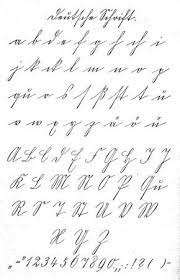 Deutsche Schrift.
a b c d e f g h ch i
j k ck l m n o p
qu r s ſ ß st t u
v w x y z ä ö ü
A B C D E F G H I J
K L M N O P Qu
R S T St U V W
X Y Z
„-“1234567890,.;:!?( )-